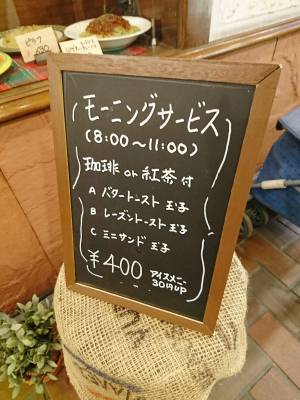 ピラフ
630
モーニングサービス
(8:00〜11:00)
珈琲 or 紅茶付
A バタートースト 玉子
B レーズントースト 玉子
C ミニサンド 玉子
¥400 アイスメニュー
30円UP